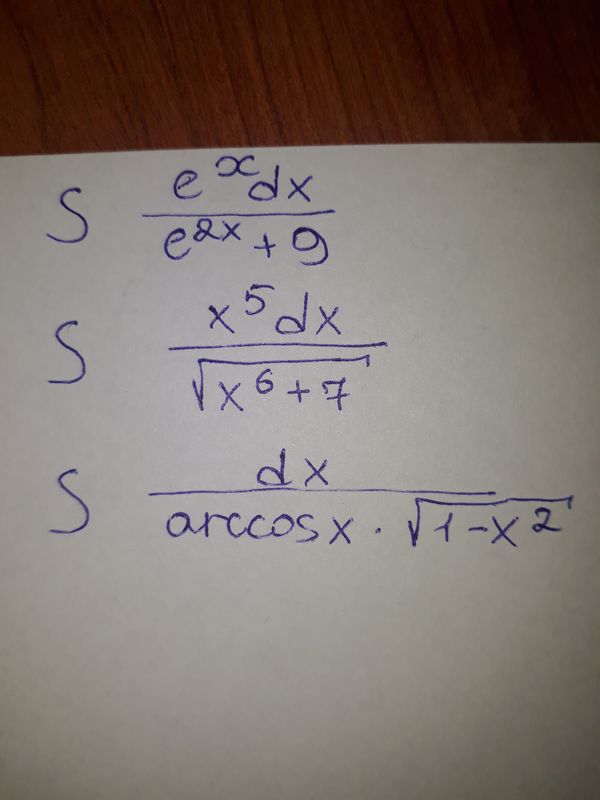 ∫ e^x dx / e^{2x} + 9
∫ x^5 dx / √(x^6 + 7)
∫ dx / arccosx · √(1-x^2)